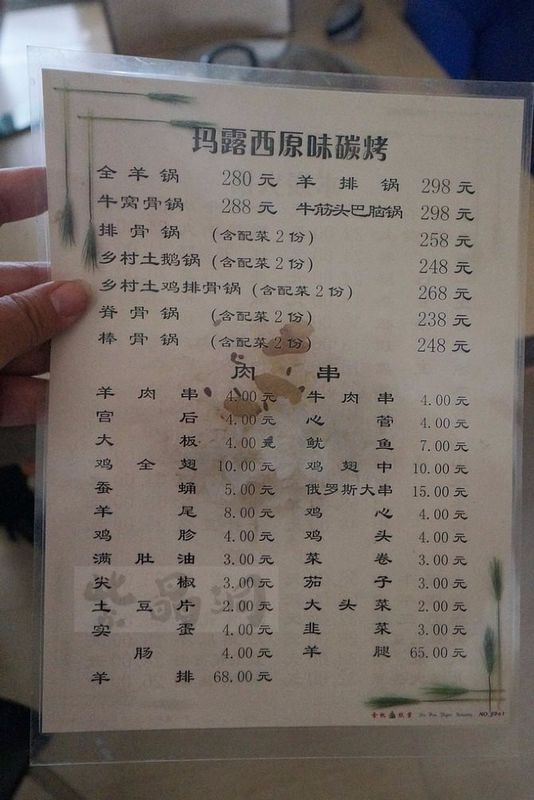 玛露西原味碳烤
全羊锅 280元 羊排锅 298元
牛窝骨锅 288元 牛筋头巴脑锅 298元
排骨锅 (含配菜2份) 258元
乡村土鹅锅 (含配菜2份) 248元
乡村土鸡排骨锅 (含配菜2份) 268元
脊骨锅 (含配菜2份) 238元
棒骨锅 (含配菜2份) 248元
肉串
羊肉串 4.00元 牛肉串 4.00元
宫后 4.00元 心管 4.00元
大板 4.00元 鱿鱼 7.00元
鸡全翅 10.00元 鸡翅中 10.00元
蚕蛹 5.00元 俄罗斯大串 15.00元
羊尾 8.00元 鸡心 4.00元
鸡胗 4.00元 鸡头 4.00元
满肚油 3.00元 菜卷 3.00元
尖椒 3.00元 茄子 3.00元
土豆片 2.00元 大头菜 2.00元
实蛋 4.00元 韭菜 3.00元
肠 4.00元 羊腿 65.00元
羊排 68.00元
紫晶洞